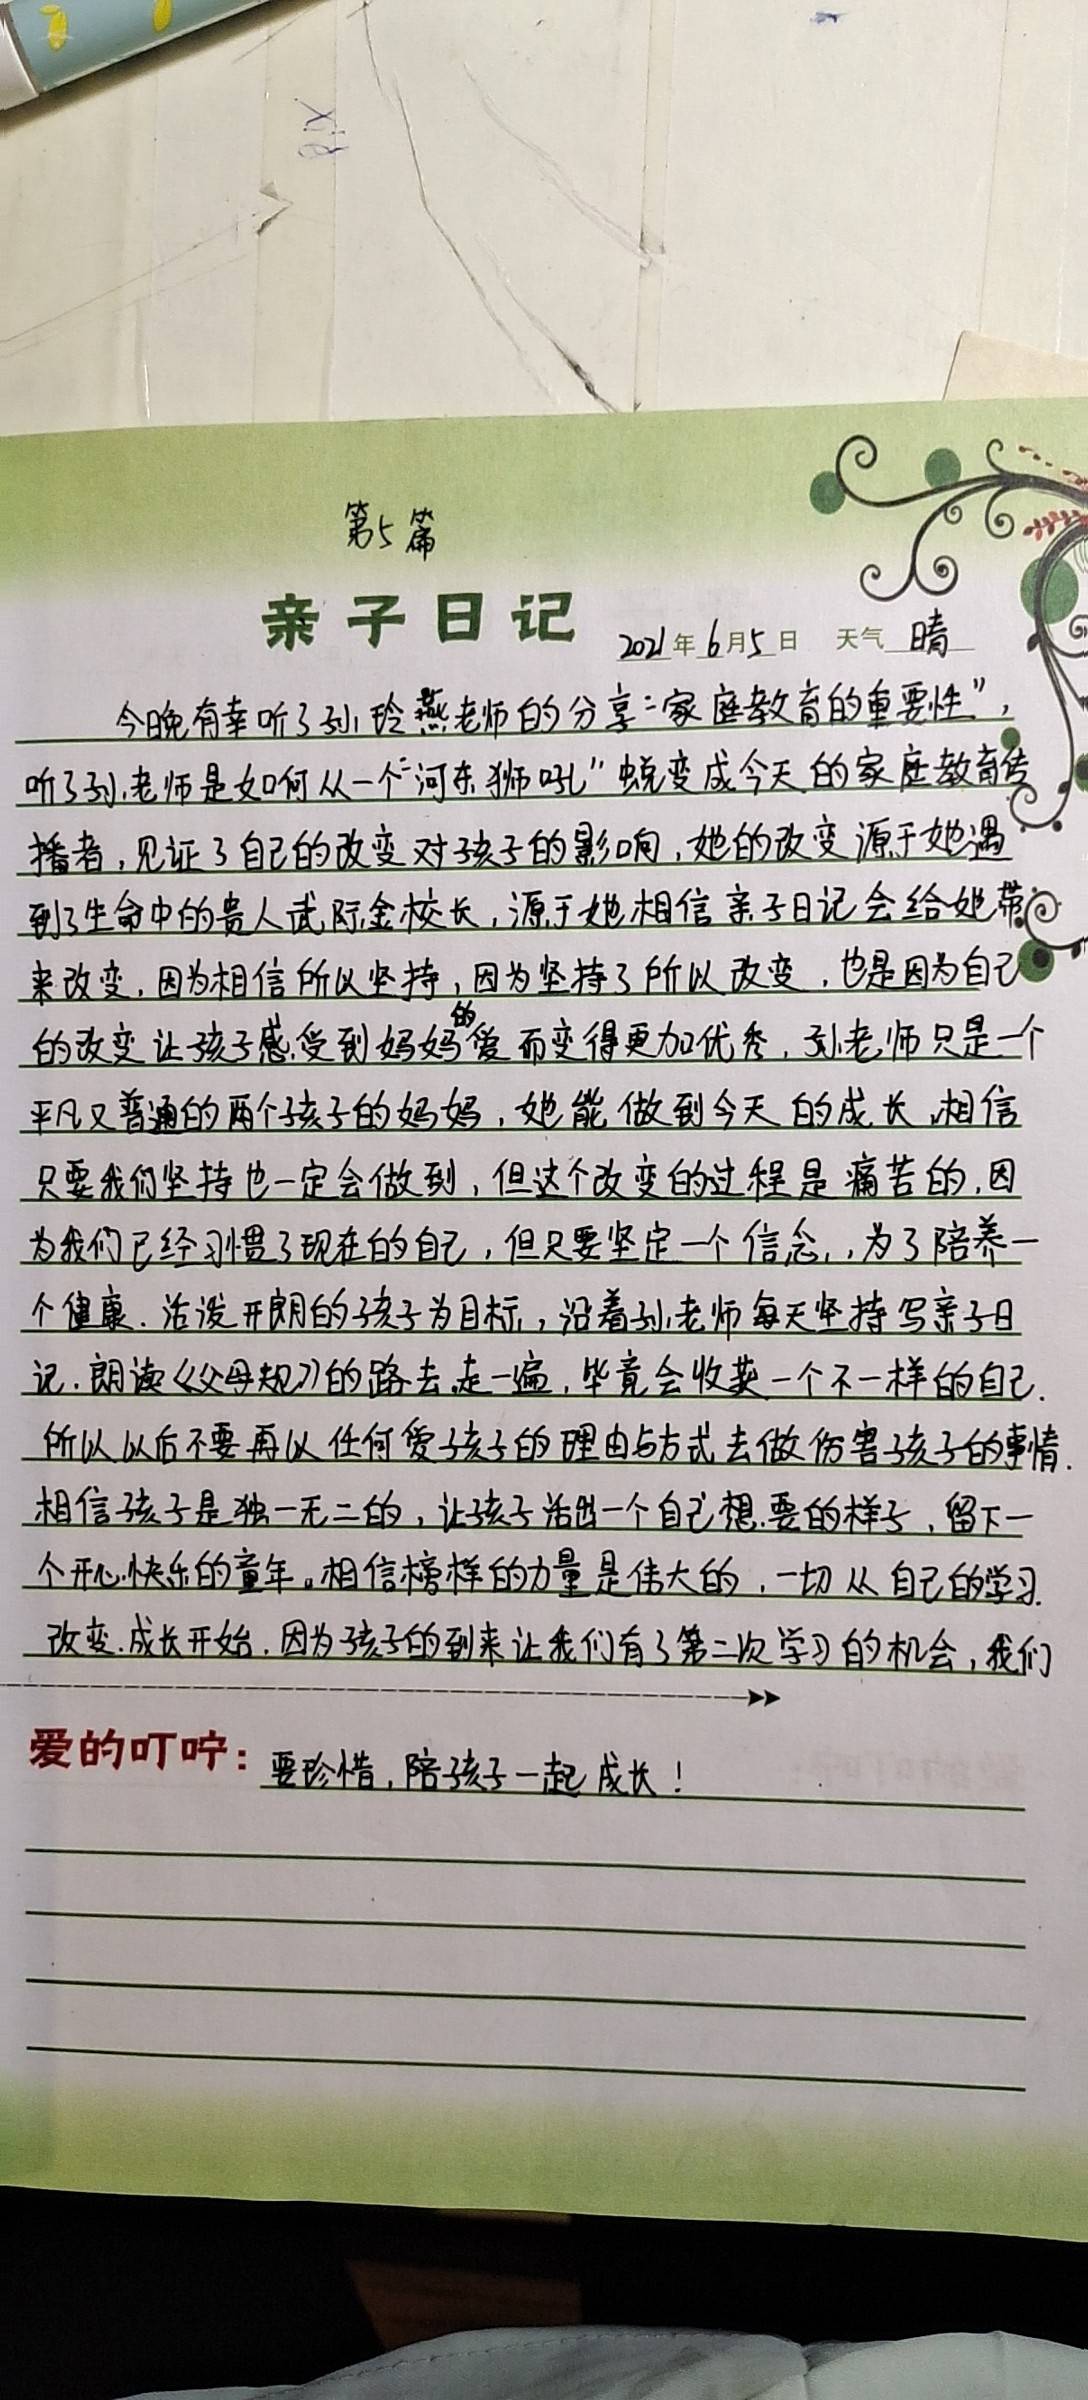 第5篇
亲子日记 2021年6月5日 天气 晴
今晚有幸听了孙玲燕老师的分享“家庭教育的重要性”，
听了孙老师是如何从一个“河东狮吼”蜕变成今天的家庭教育传
播者，见证了自己的改变对孩子的影响，她的改变源于她遇
到了生命中的贵人武际金校长，源于她相信亲子日记会给她带
来改变，因为相信所以坚持，因为坚持了所以改变，也是因为自己
的改变让孩子感受到妈妈的爱而变得更加优秀，孙老师只是一个
平凡又普通的两个孩子的妈妈，她能做到今天的成长，相信
只要我们坚持也一定会做到，但这个改变的过程是痛苦的，因
为我们已经习惯了现在的自己，但只要坚定一个信念，，为了陪养一
个健康、活泼开朗的孩子为目标，沿着孙老师每天坚持写亲子日
记、朗读《父母规》的路去走一遍，毕竟会收获一个不一样的自己.
所以以后不要再以任何爱孩子的理由与方式去做伤害孩子的事情.
相信孩子是独一无二的，让孩子活出一个自己想要的样子，留下一
个开心快乐的童年。相信榜样的力量是伟大的，一切从自己的学习.
改变.成长开始.因为孩子的到来让我们有了第二次学习的机会，我们
爱的叮咛：要珍惜，陪孩子一起成长！